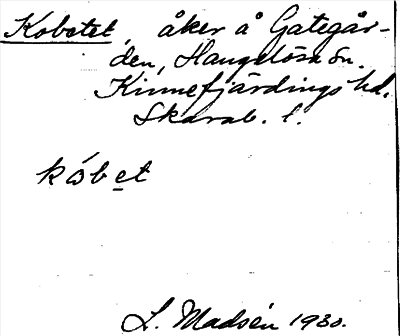 Kobetet, åker å Gategår-
den, Hangelösa sn.
Kinnefjärdings hd.
Skarab. l.
kóbet
L. Madsén 1930.